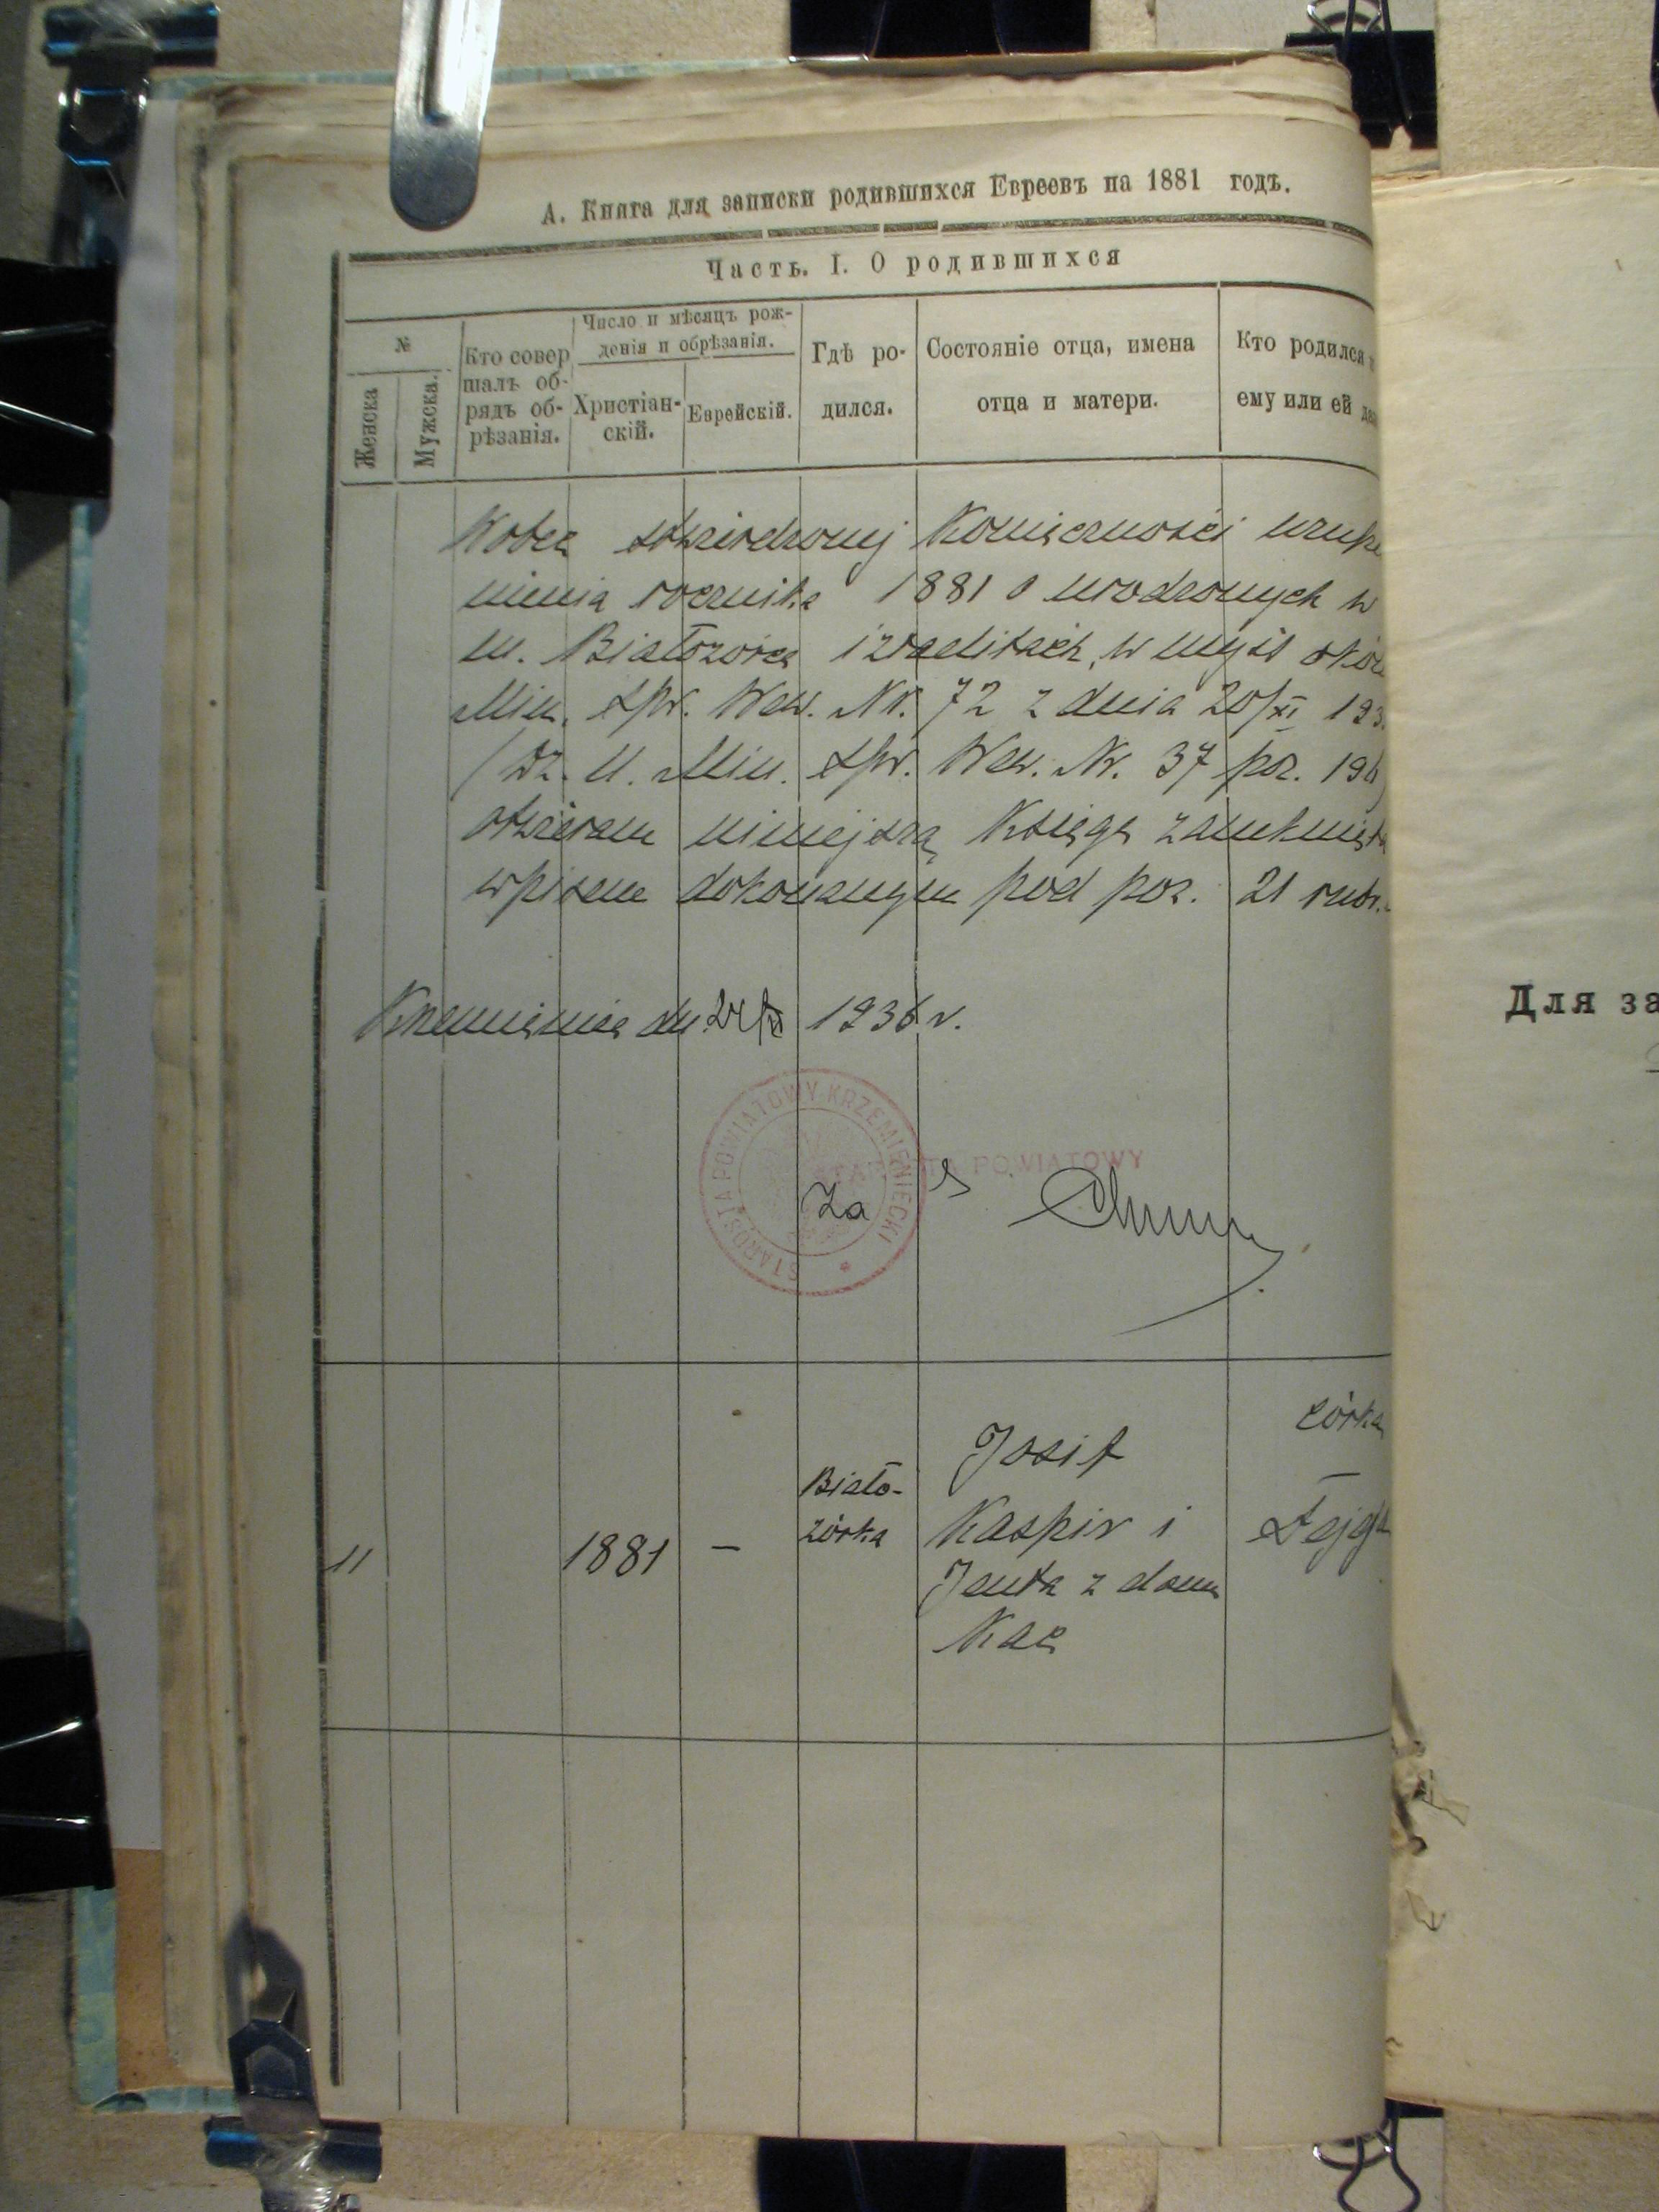 А. Книга для записки родившихся Евреевъ на 1881 годъ.
Часть. I. О родившихся
№
Женска
Мужска.
Кто совер
шалъ об-
рядъ об-
рѣзанія.
Число и мѣсяцъ рож-
денія и обрѣзанія.
Христіан-
скій.
Еврейскій.
Гдѣ ро-
дился.
Состояніе отца, имена
отца и матери.
Кто родился
ему или ей
Wobec stwierdzonej konieczności uzupeł
nienia rocznika 1881 o urodzonych w
m. Białozórce izraelitach, w myśl okól
Min. Spr. Wew. Nr. 72 z dnia 20/XI 193
/Dz. U. Min. Spr. Wew. Nr. 37 poz. 196/
otwieram niniejszą Księgę zamkniętą
wpisem dokonanym pod poz. 21 rubr.
Krzemieniec dn. 1936 r.
STAROSTA POWIATOWY KRZEMIENIECKI
STAROSTA POWIATOWY
Za
córka
Josif
Biało-
Kaspir i
Fejga
zórka
11 1881 —
Jenta z domu
Kac
Для за